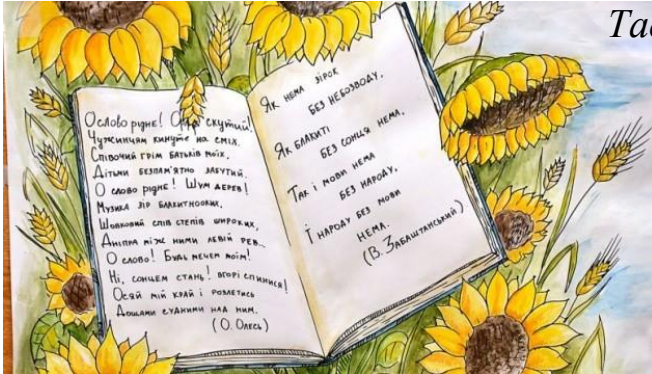 О слово рідне! скутий!
Чужинцям кинуте на сміх,
Співочий грім батьків моїх,
Дітьми безпам'ятно забутий.
О слово рідне! Шум дерев!
Музика зір блакитнооких,
Шовковий спів степів широких,
Дніпра між ними левій рев...
О слово! Будь мечем моїм!
Ні, сонцем стань! вгорі спинися!
Осяй мій край і розлетись
Дощами судними над ним.
(О. Олесь)
Як нема зірок
без небозводу,
Як блакиті
без сонця нема,
Так і мови нема
без народу,
І народу без мови
нема.
(В. Забаштанський)